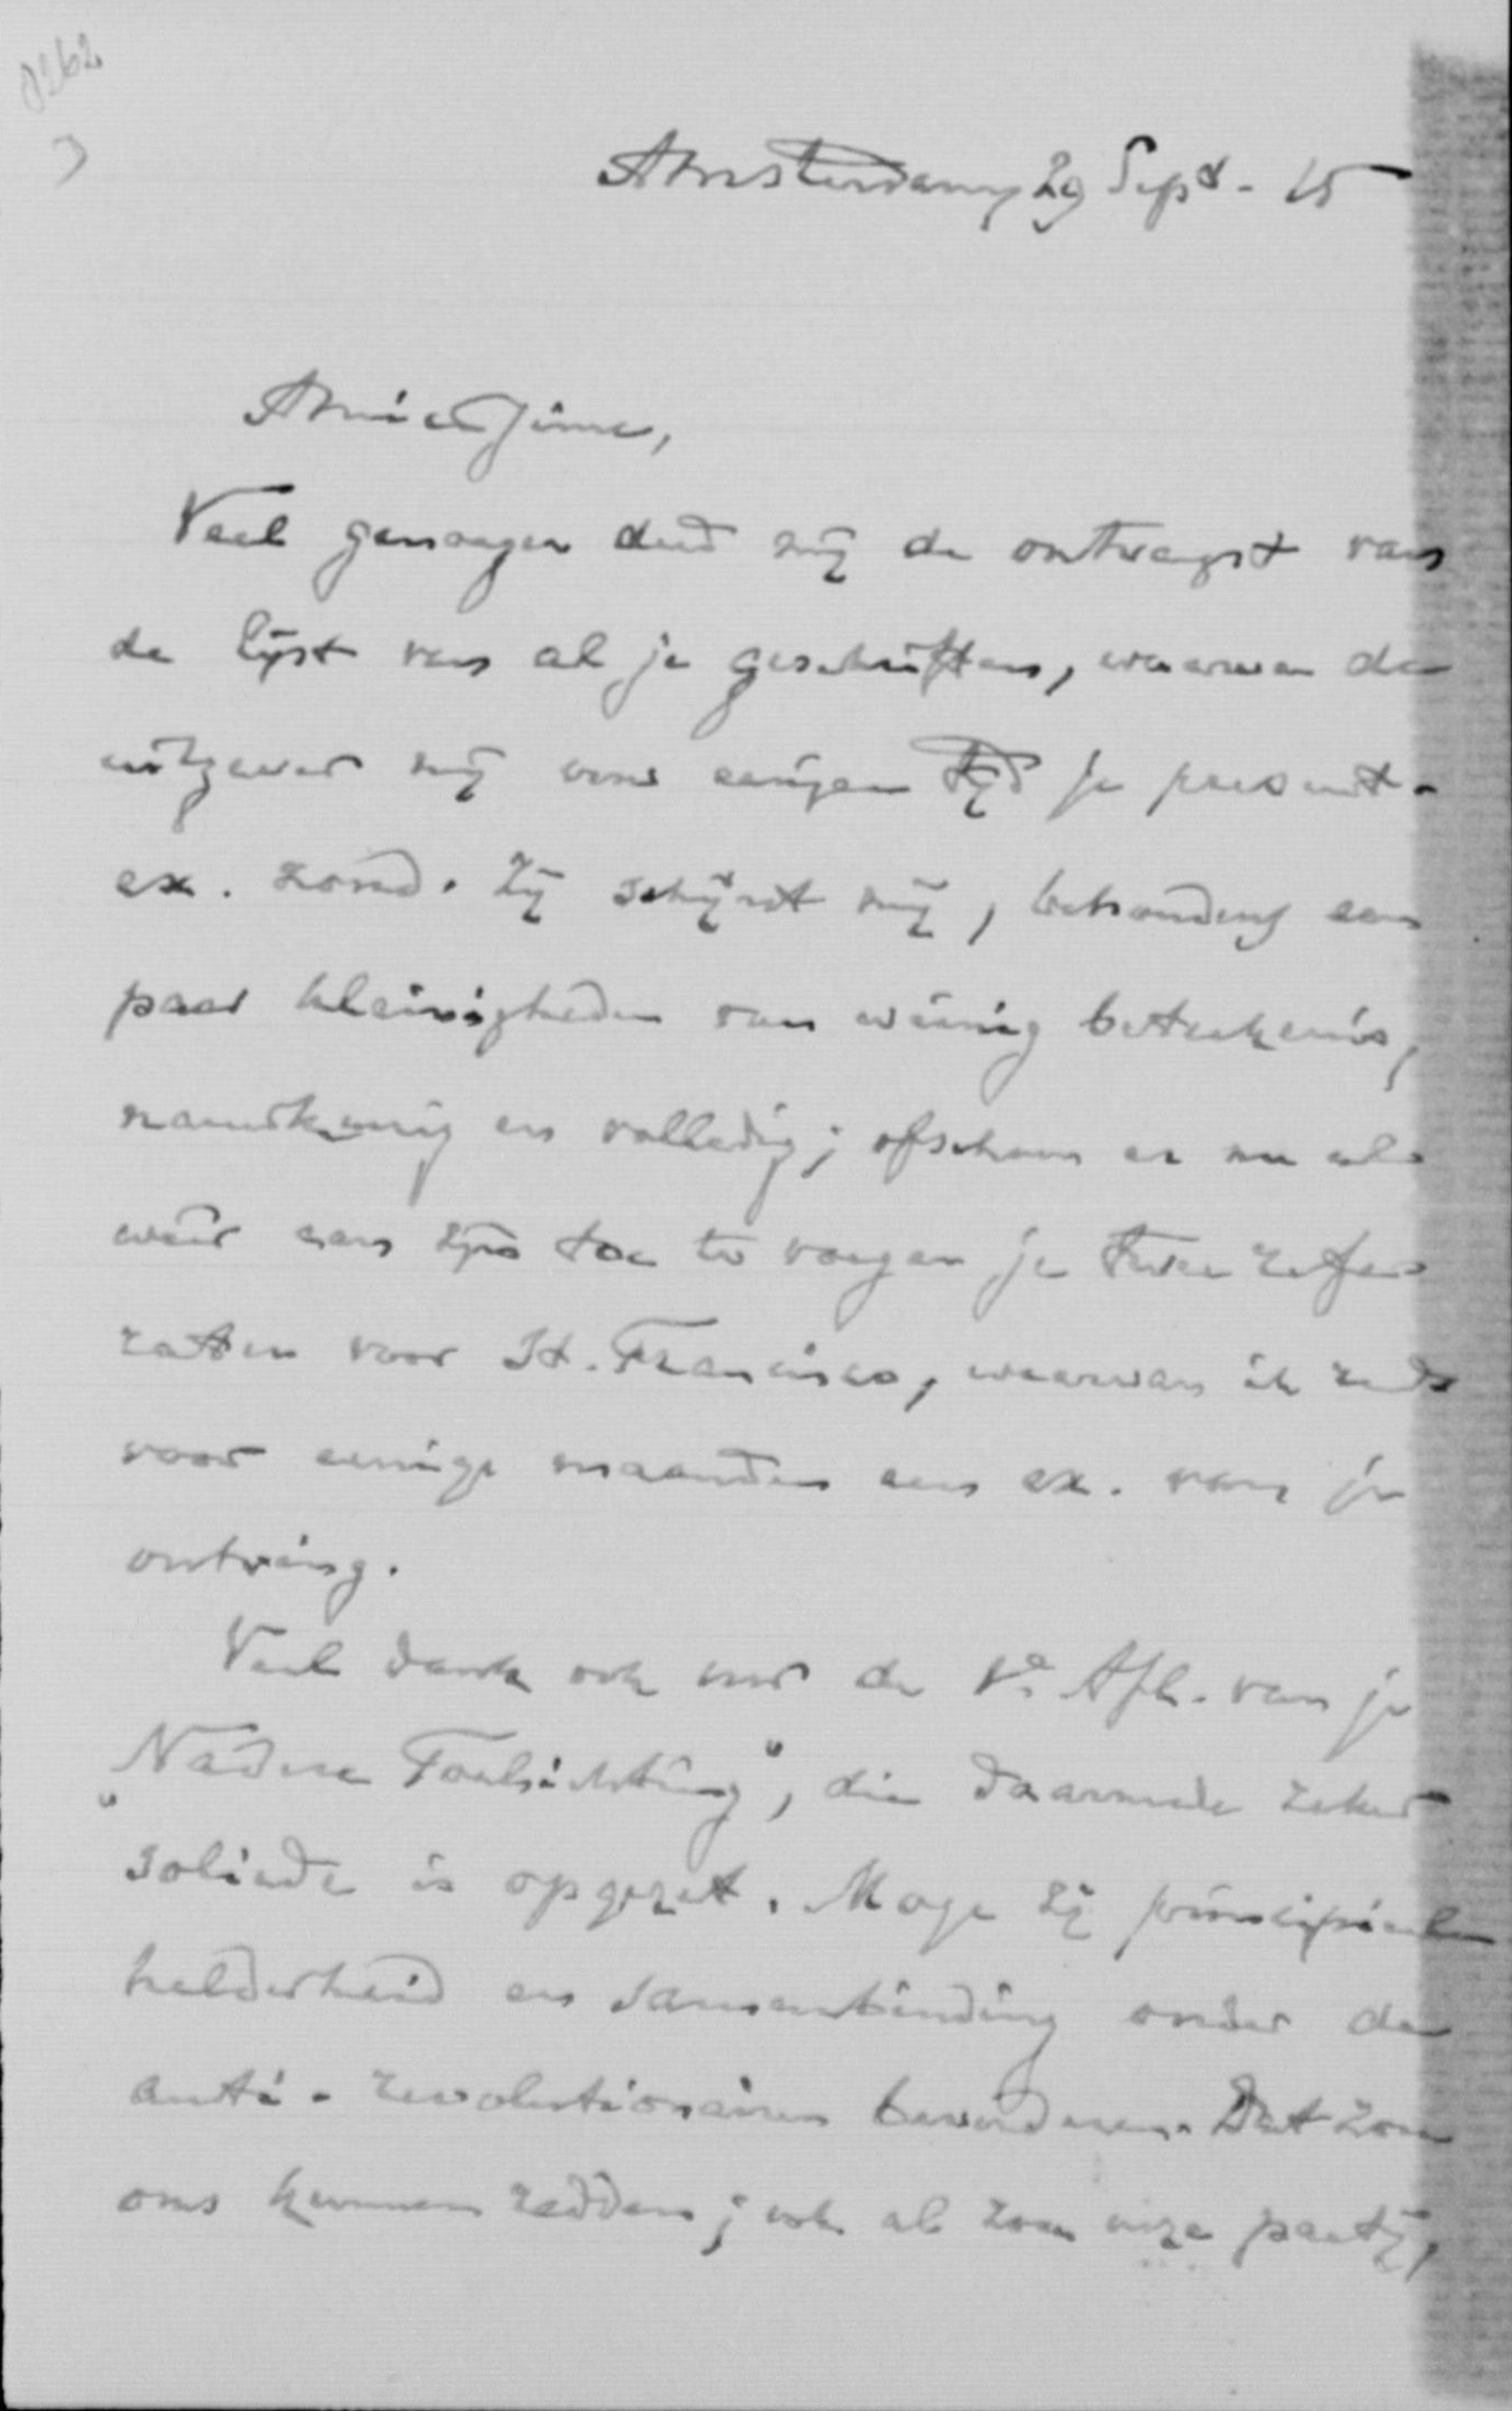 8262
Amsterdam, 29 Sept. - 15
Amicissime,
Veel genoegen deed mij de ontvangst van
de lijst van al je geschriften, waarvan de
uitgever mij voor eenigen tijd je present-
ex. zond. Zij schijnt mij, behoudens een
paar kleinigheden van weinig beteekenis,
nauwkeurig en volledig; ofschoon er nu al
weer aan zijn toe te voegen je twee refe-
raten voor St. Francisco, waarvan ik reeds
voor eenige maanden een ex. van je
ontving.
Veel dank ook voor de 1e Afl. van je
„Nadere Toelichting", die daarmede zeker
soliede is opgezet. Moge zij principieele
helderheid en samenbinding onder de
anti-revolutionairen bevorderen. Dat zou
ons kunnen redden; ook al zou onze partij,